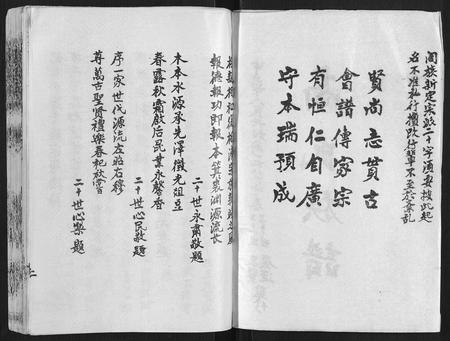 闔族新定宗派二十字須要按此起
名不准私行擅改行輩不至於紊乱
賢尚志貫古
會譜傳家宗
有恒仁自廣
守本瑞預成
報德報功即報本箕裘淵源流長
二十世永肅敬題
木本水源承先澤徵光俎豆
春露秋霜啟后昆業永馨香
二十世心民敬題
序一家世代源流左昭右穆
尊萬古聖賢禮樂春祀秋嘗
二十世心榘題